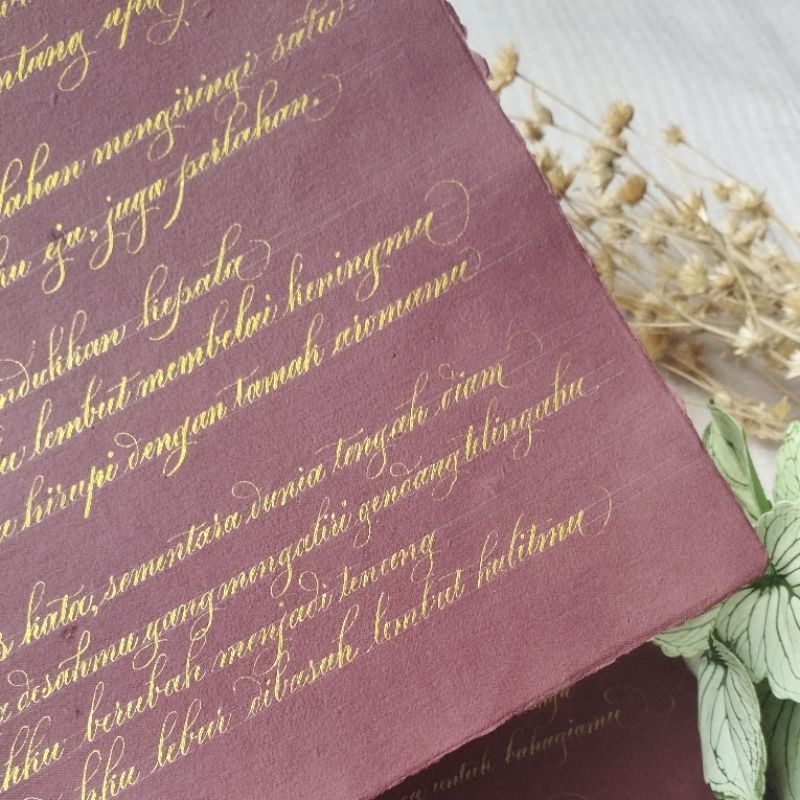 apa
mengiringi satu.
eja, juga perlahan.
kepala
lembut membelai keningmu
hirupi dengan tamak aromamu
kata, sementara dunia tengah diam
desahmu yang mengaliri gendang telingaku
berubah menjadi lonceng
lebur dibasah lembut kulitmu
untuk bahagiamu